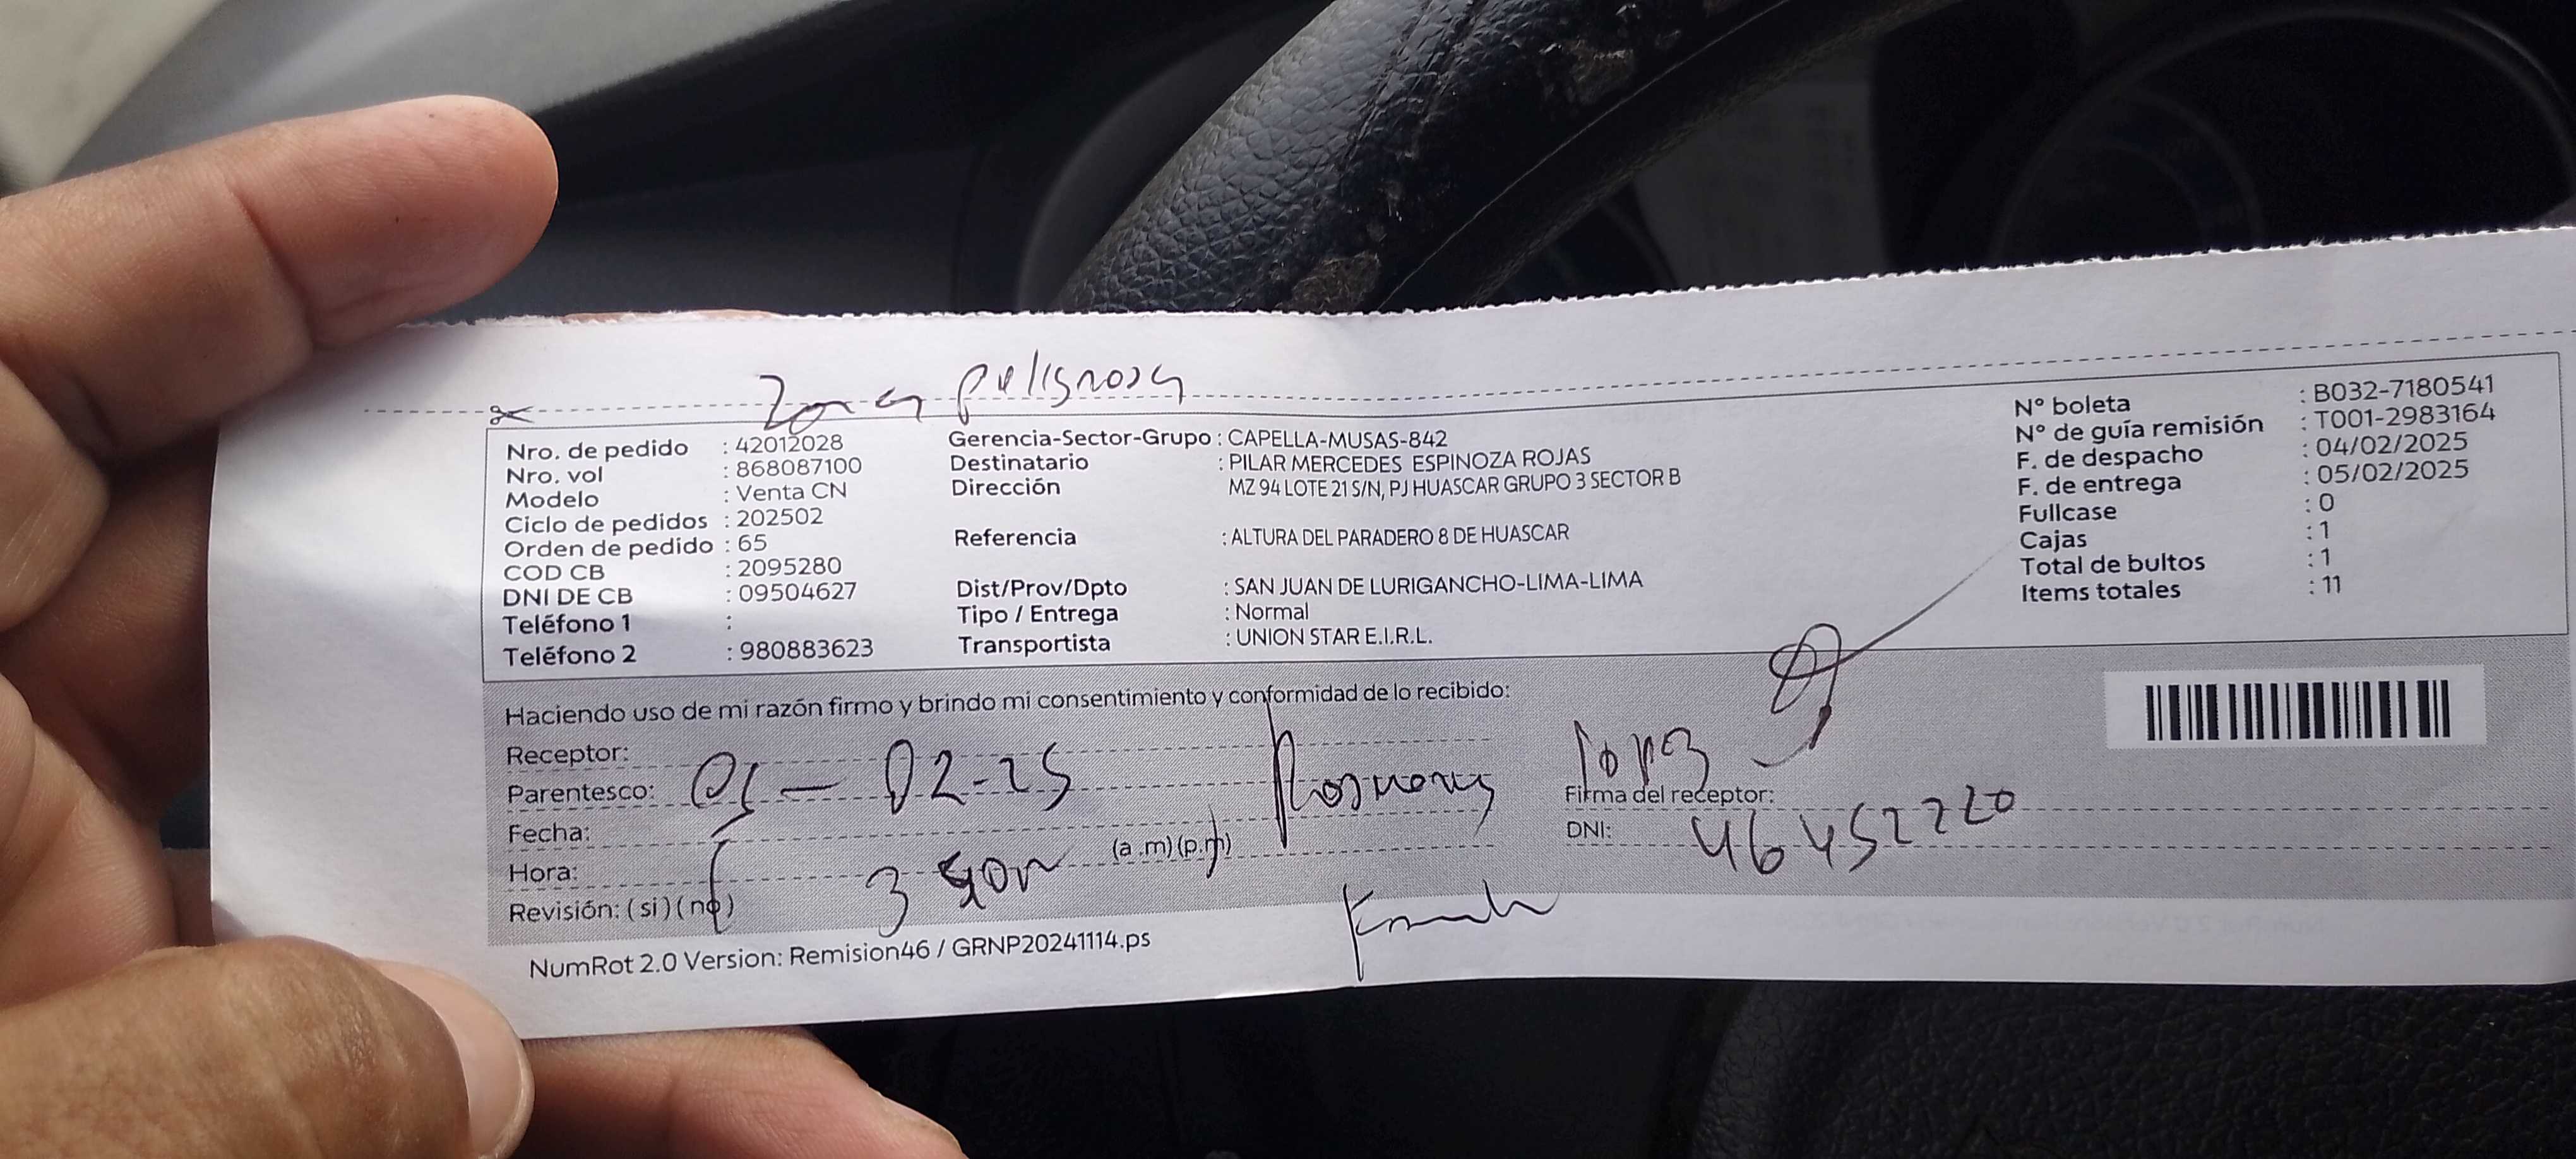 Zona peligrosa
Nro. de pedido : 42012028
Nro. vol : 868087100
Modelo : Venta CN
Ciclo de pedidos : 202502
Orden de pedido : 65
COD CB : 2095280
DNI DE CB : 09504627
Teléfono 1 :
Teléfono 2 : 980883623
Gerencia-Sector-Grupo : CAPELLA-MUSAS-842
Destinatario : PILAR MERCEDES ESPINOZA ROJAS
Dirección MZ 94 LOTE 21 S/N, PJ HUASCAR GRUPO 3 SECTOR B
Referencia : ALTURA DEL PARADERO 8 DE HUASCAR
Dist/Prov/Dpto : SAN JUAN DE LURIGANCHO-LIMA-LIMA
Tipo / Entrega : Normal
Transportista : UNION STAR E.I.R.L.
N° boleta : B032-7180541
N° de guía remisión : T001-2983164
F. de despacho : 04/02/2025
F. de entrega : 05/02/2025
Fullcase : 0
Cajas : 1
Total de bultos : 1
Items totales : 11
Haciendo uso de mi razón firmo y brindo mi consentimiento y conformidad de lo recibido:
Receptor:
Parentesco: 05-02-25
Fecha:
Hora: (a .m) (p.m)
3
Revisión: ( si ) ( no )
Firma del receptor:
DNI: 46452220
NumRot 2.0 Version: Remision46 / GRNP20241114.ps